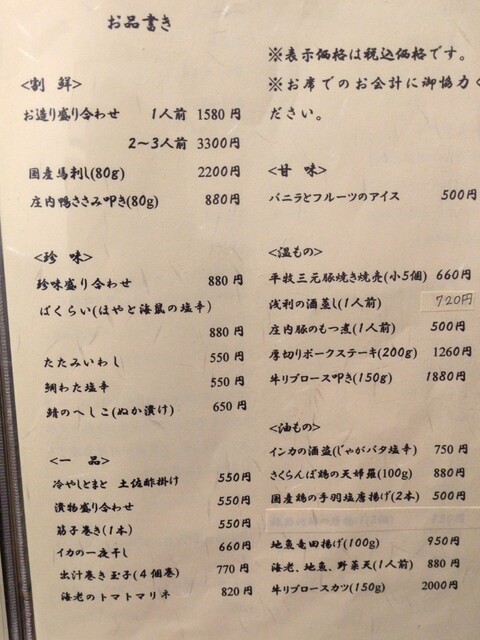 お品書き
<割 鮮>
お造り盛り合わせ 1人前 1580 円
2～3人前 3300円
国産馬刺し(80g) 2200円
庄内鴨ささみ叩き(80g) 880円
<珍 味>
珍味盛り合わせ 880 円
ばくらい(ほやと海鼠の塩辛)
880 円
たたみいわし 550 円
鯛わた塩辛 550 円
鯖のへしこ(ぬか漬け) 650 円
<一 品>
冷やしとまと 土佐酢掛け 550円
漬物盛り合わせ 550円
筋子巻き(1本) 550円
イカの一夜干し 660円
出汁巻き玉子(4個巻) 770 円
海老のトマトマリネ 820 円
※表示価格は税込価格です。
※お席でのお会計に御協力く
ださい。
<甘 味>
バニラとフルーツのアイス 500円
<温もの>
平牧三元豚焼き焼売(小5個) 660円
浅利の酒蒸し(1人前) 720円
庄内豚のもつ煮(1人前) 500円
厚切りポークステーキ(200g) 1260円
牛リブロース叩き(150g) 1880円
<油もの>
インカの酒盗(じゃがバタ塩辛) 750 円
さくらんぼ鶏の天婦羅(100g) 880円
国産鶏の手羽塩唐揚げ(2本) 500円
地魚竜田揚げ(100g) 950円
海老、地魚、野菜天(1人前) 880 円
牛リブロースカツ(150g) 2000円